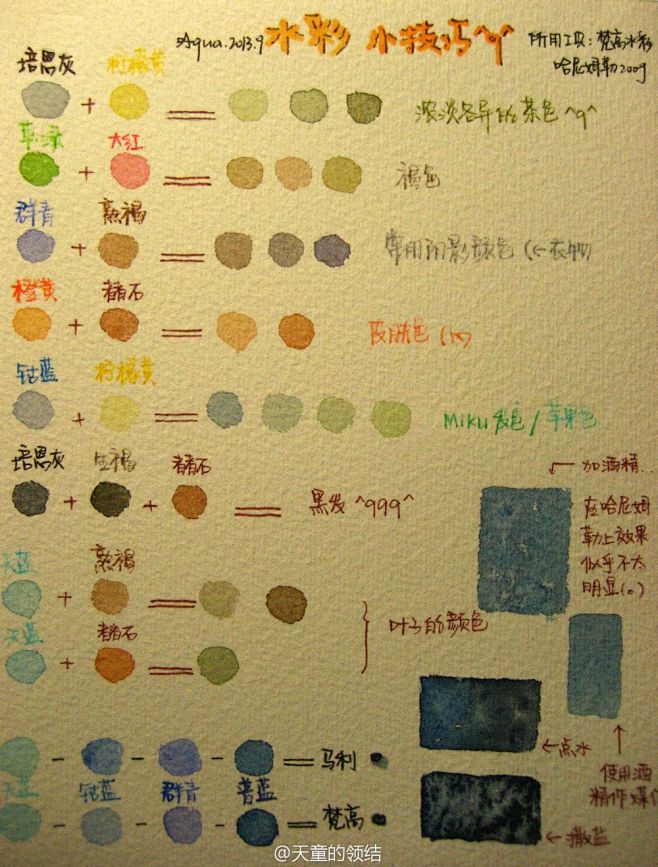 Aqua.2013.9 水彩 小技巧 所用工具：梵高水彩
哈尼姆勒200g
培恩灰 柠檬黄
+ = 浓淡各异的茶色^q^
草绿 大红
+ = 褐色
群青 熟褐
+ = 常用阴影颜色(←衣物)
橙黄 赭石
+ = 皮肤色
钴蓝 柠檬黄
+ = Miku发色/苹果色
培恩灰 生褐 赭石
+ + = 黑发^q99^
←加酒精…
在哈尼姆
勒上效果
似乎不太
明显(。)
天蓝 熟褐
+ =
叶子的颜色
天蓝 赭石
+ =
←点水
使用酒
精作
- - - = 马利
天蓝 钴蓝 群青 普蓝
- - - = 梵高
←撒盐
@天童的领结